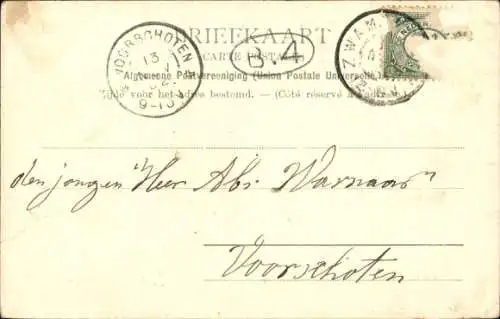 BRIEFKAART
(CARTE POSTALE)
Algemeene Postvereeniging (Union Postale Universelle)
Zijde voor het adres bestemd. — (Côté réservé à l'adresse.)
VOORSCHOTEN
13
9-10V
3.4
ZWAM
den jongen Heer Abr Warnaar
Voorschoten